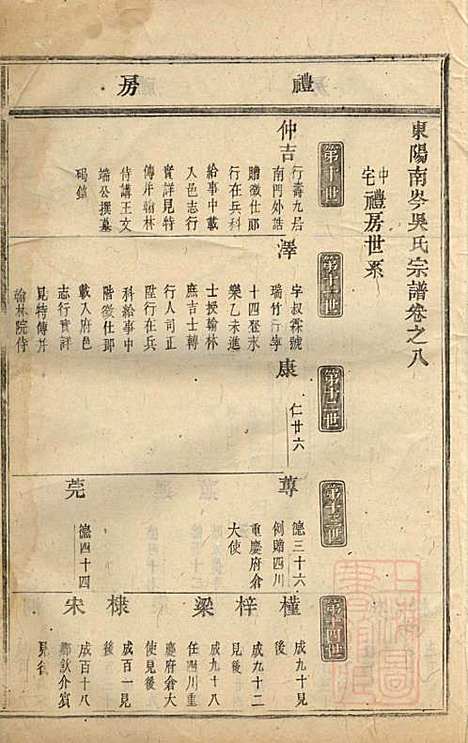 禮房
東陽南岑吳氏宗譜卷之八
中宅禮房世系
第十一世
第十二世
第十三世
第十四世
仲吉
行壽九居
南門外誥
贈徵仕郎
行在兵科
給事中載
入邑志行
實詳見特
傳幷翰林
侍講王文
端公撰墓
碣銘
澤
字叔霖號
瑞竹行寧
十四登永
樂乙未進
士授翰林
庶吉士轉
行人司正
陞行在兵
科給事中
階徵仕郎
載入府邑
志行實詳
見特傳幷
翰林院侍
康
仁廿六
蓴
德三十六
例贈四川
重慶府倉
大使
莞
德四十四
橦
成九十見
後
梓
成九十二
見後
梁
成九十八
任四川重
慶府倉大
使見後
棣
成百一見
後
宋
成百十八
鄉飲介賓
見後